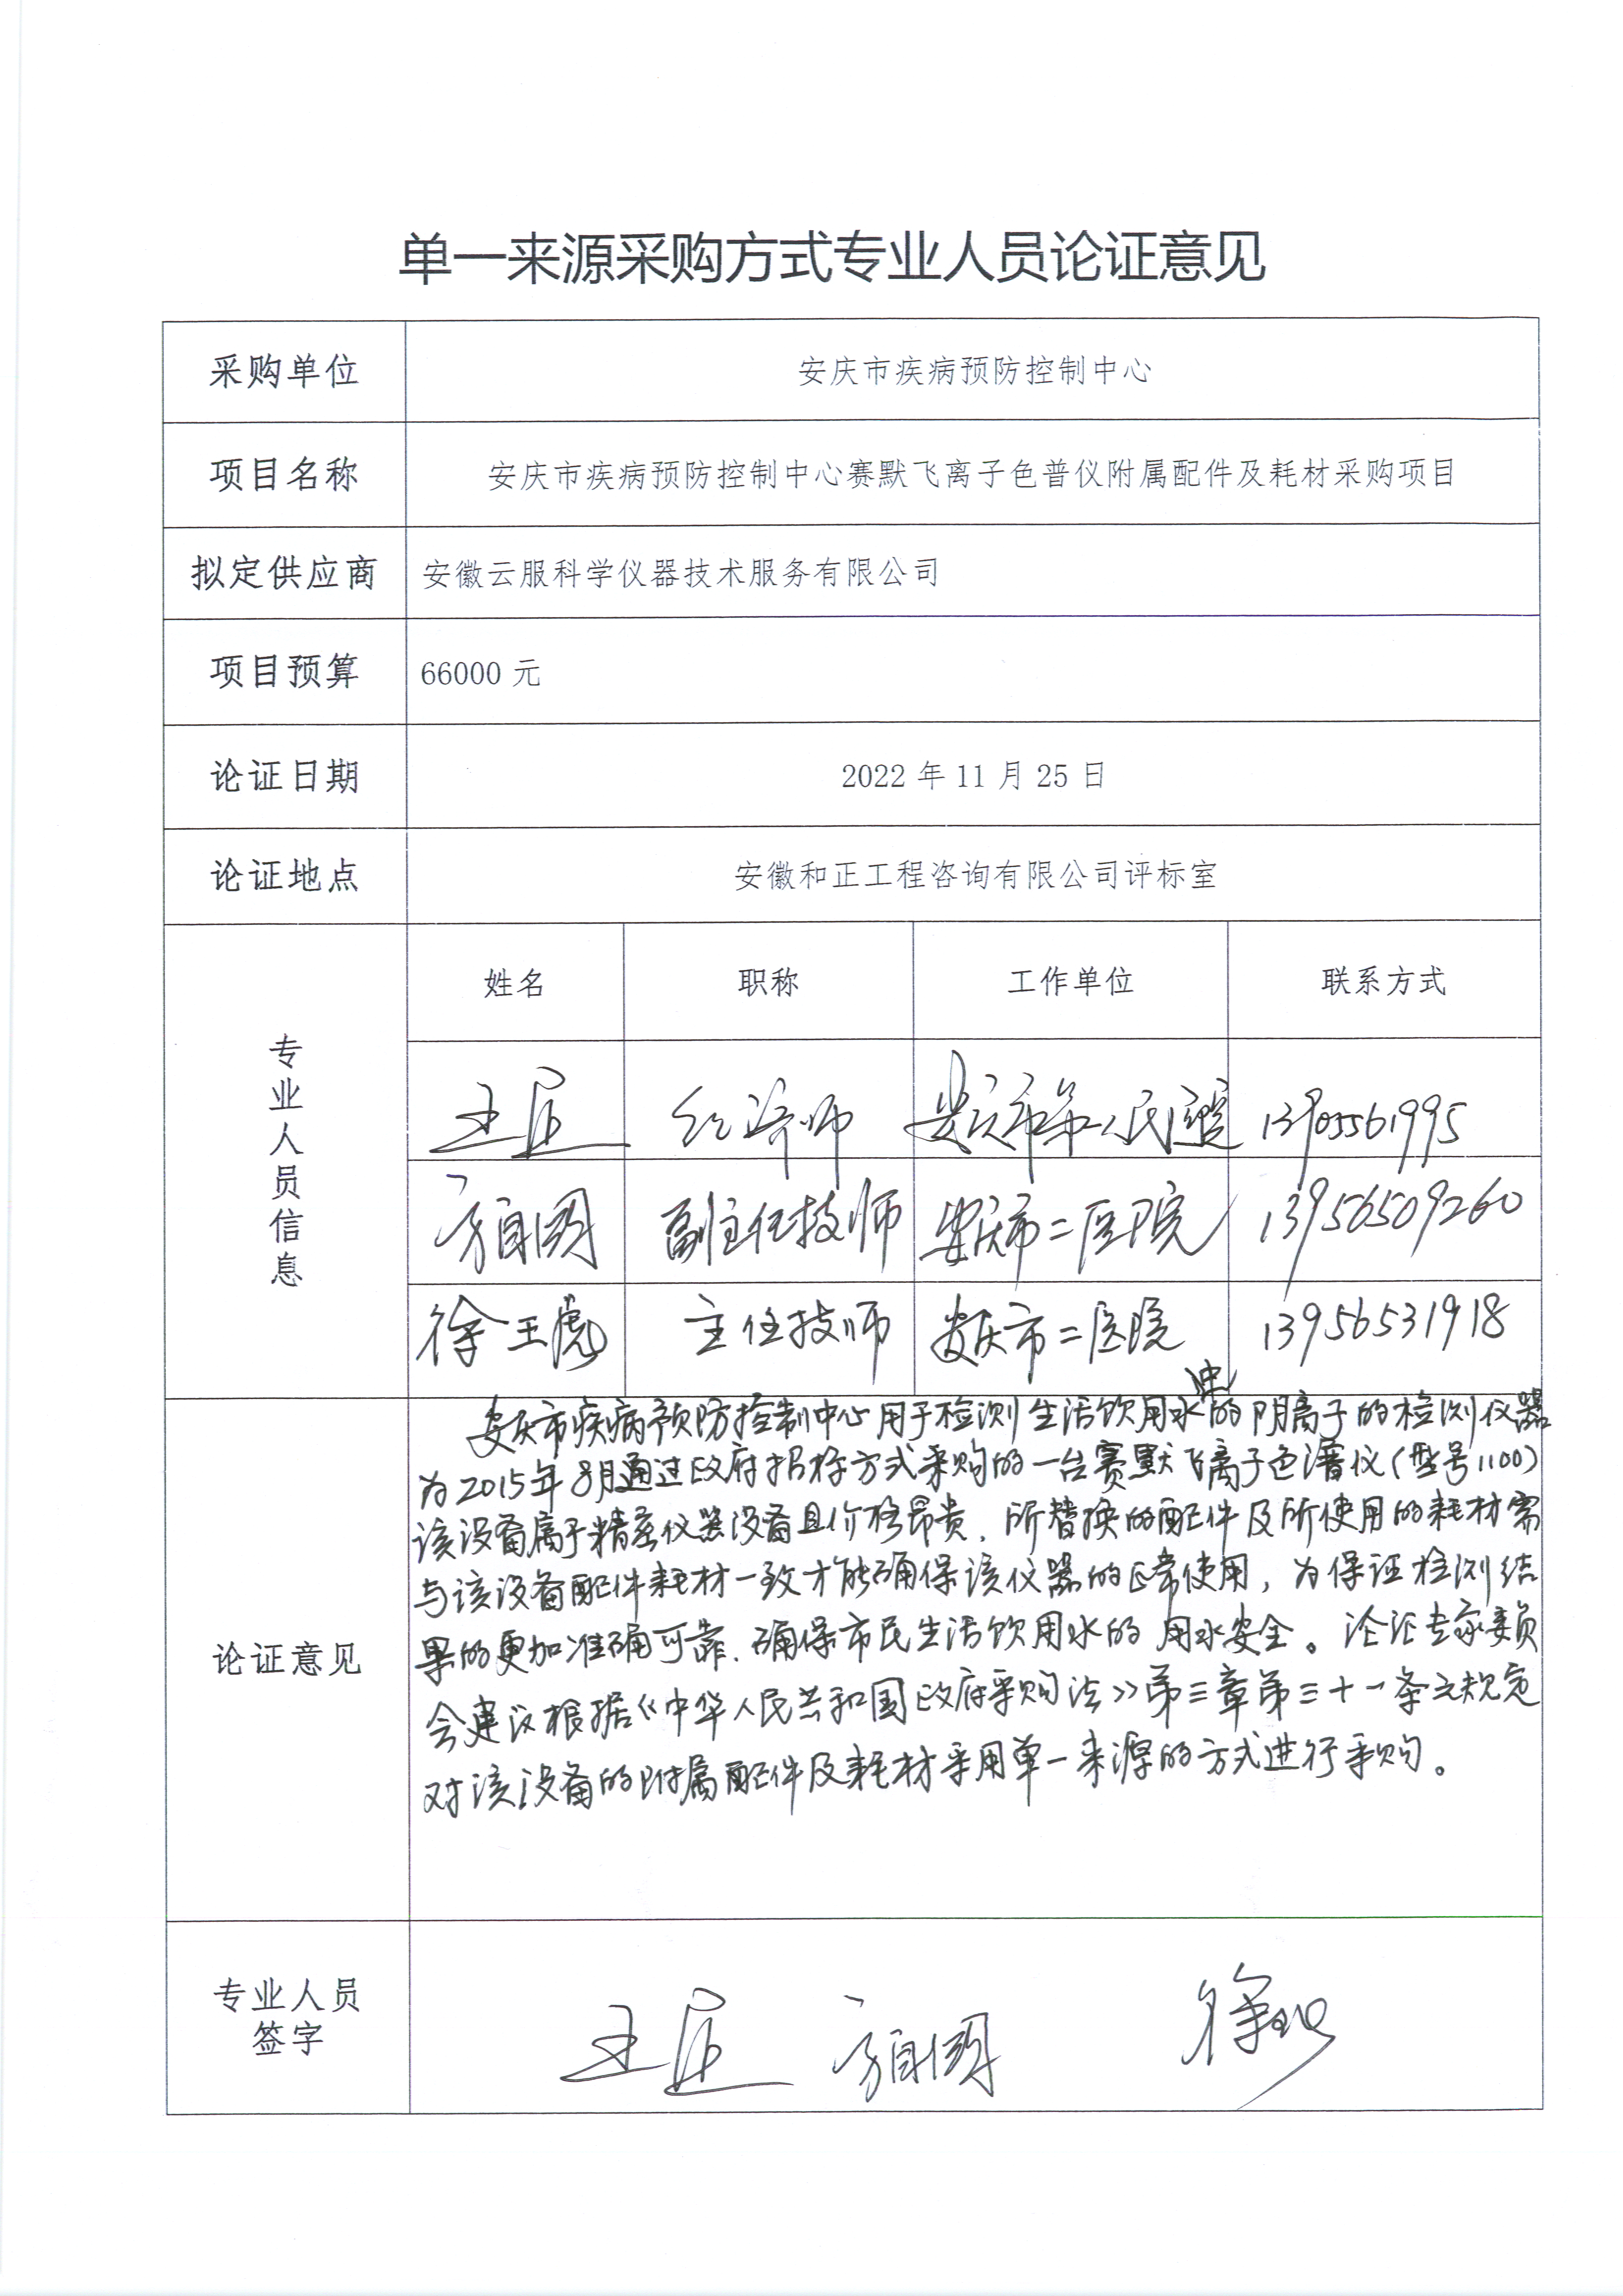 单一来源采购方式专业人员论证意见
采购单位 安庆市疾病预防控制中心
项目名称 安庆市疾病预防控制中心赛默飞离子色普仪附属配件及耗材采购项目
拟定供应商 安徽云服科学仪器技术服务有限公司
项目预算 66000 元
论证日期 2022 年 11 月 25 日
论证地点 安徽和正工程咨询有限公司评标室
专业人员信息
姓名 职称 工作单位 联系方式
王 经济师 安庆市第一人民医院 13905561995
方自国 副主任技师 安庆市二医院 13956509260
徐王虎 主任技师 安庆市二医院 13956531918
论证意见
安庆市疾病预防控制中心用于检测生活饮用水中的阴离子的检测仪器
为2015年8月通过政府招标方式采购的一台赛默飞离子色谱仪(型号1100)
该设备属于精密仪器设备且价格昂贵，所替换的配件及所使用的耗材需
与该设备配件耗材一致才能确保该仪器的正常使用，为保证检测结
果的更加准确可靠，确保市民生活饮用水的用水安全。论证专家委员
会建议根据《中华人民共和国政府采购法》第三章第三十一条之规定
对该设备的附属配件及耗材采用单一来源的方式进行采购。
专业人员
签字
王 方自国 徐